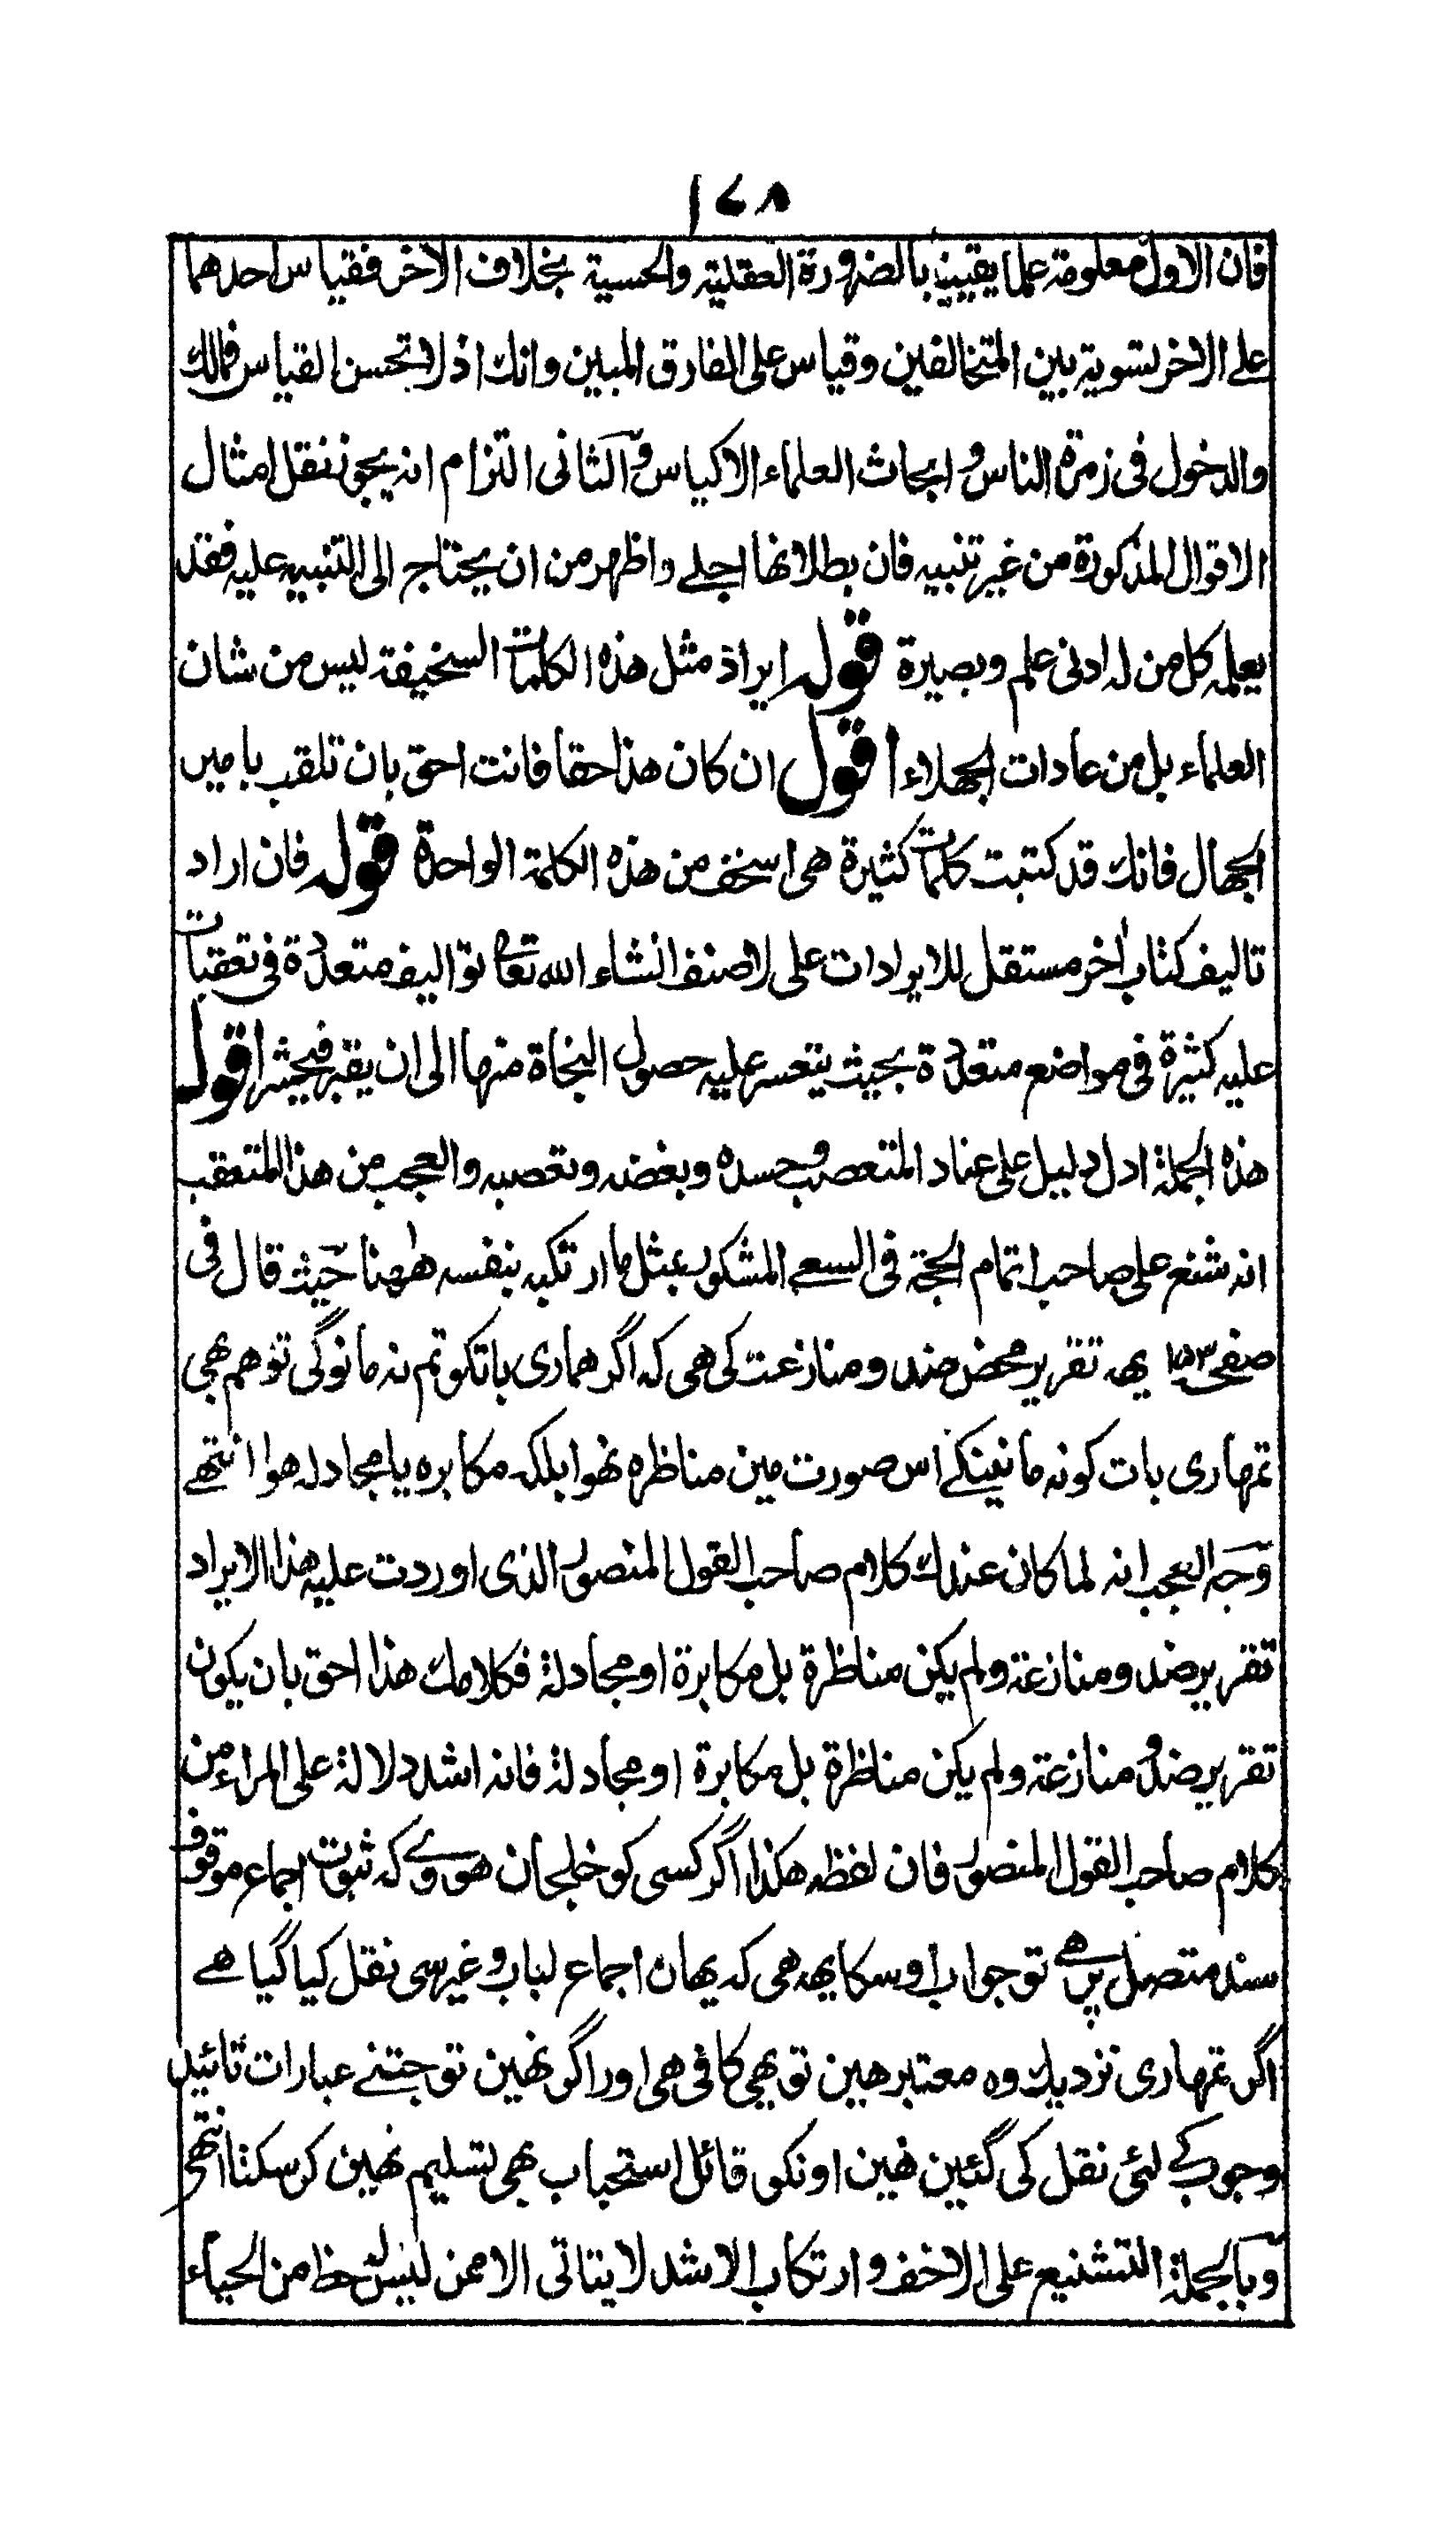 ١٧٨
فان الاول معلومة علما يقينيا بالضرورة العقلية والحسية بخلاف الاخر فقياس احدهما
على الاخر تسوية بين المتخالفين وقياس على الفارق المبين وانك اذ لا تحسن القياس فمالك
والدخول فى زمرة الناس و ابحاث العلماء الاكياس والثانى التزام انه يجوز نقل امثال
الاقوال المذكورة من غير تنبيه فان بطلانها اجلے واظهر من ان يحتاج الى التنبيه عليه فقد
يعلمه كل من له ادنى علم وبصيرة قوله ايراد مثل هذه الكلمات السخيفة ليس من شان
العلماء بل من عادات الجهلاء اقول ان كان هذا حقا فانت احق بان تلقب بامير
الجهال فانك قد كتبت كلمات كثيرة هى اسخف من هذه الكلمة الواحدة قوله فان اراد
تاليف كتاب اخر مستقل للايرادات على لاصنف انشاء الله تعا تواليف متعددة فى تعقبات
عليه كثيرة فى مواضع متعددة بحيث يتعسر عليه حصول النجاة منها الى ان يقبر فيحشر اقول
هذه الجملة ادل دليل على عناد المتعصب وحسده وبغضه وتعصبه والعجب من هذا المتعقب
انه شنع على صاحب اتمام الحجة فى السعے المشكور بمثل ما ارتكبه بنفسه ههنا حيث قال فى
صفحہ ١٥٣ يهہ تقرير محض ضد ومنازعت كى هى كہ اگر همارى باتكو تم نہ مانوگى تو هم بهى
تمهارى بات كو نہ مانينگے اس صورت مين مناظره نهوا بلكہ مكابره يا مجادلہ هوا انتهے
وجه العجب انه لما كان عندك كلام صاحب القول المنصور الذى اوردت عليه هذا الايراد
تقرير ضد ومنازعة ولم يكن مناظرة بل مكابرة او مجادلة فكلامك هذا احق بان يكون
تقرير ضد و منازعة ولم يكن مناظرة بل مكابرة او مجادلة فانه اشد دلالة على المراء من
كلام صاحب القول المنصور فان لفظه هكذا اگر كسى كو خلجان هووے كہ ثبوت اجماع موقوف
سند متصل پر هے تو جواب اوسكا يهہ هى كہ يهان اجماع لباب وغيره سى نقل كيا گيا هے
اگر تمهارى نزديك وه معتبر هين تو يهى كافى هى اور اگر نهين تو جتنے عبارات تائيد
وجوب كے لئى نقل كى گئين هين اونكو قائل استحباب بهى تسليم نهين كرسكتا انتهى
وبالجملة التشنيع على الاخف وارتكاب الاشد لا يتاتى الا ممن ليس له حظ من الحياء